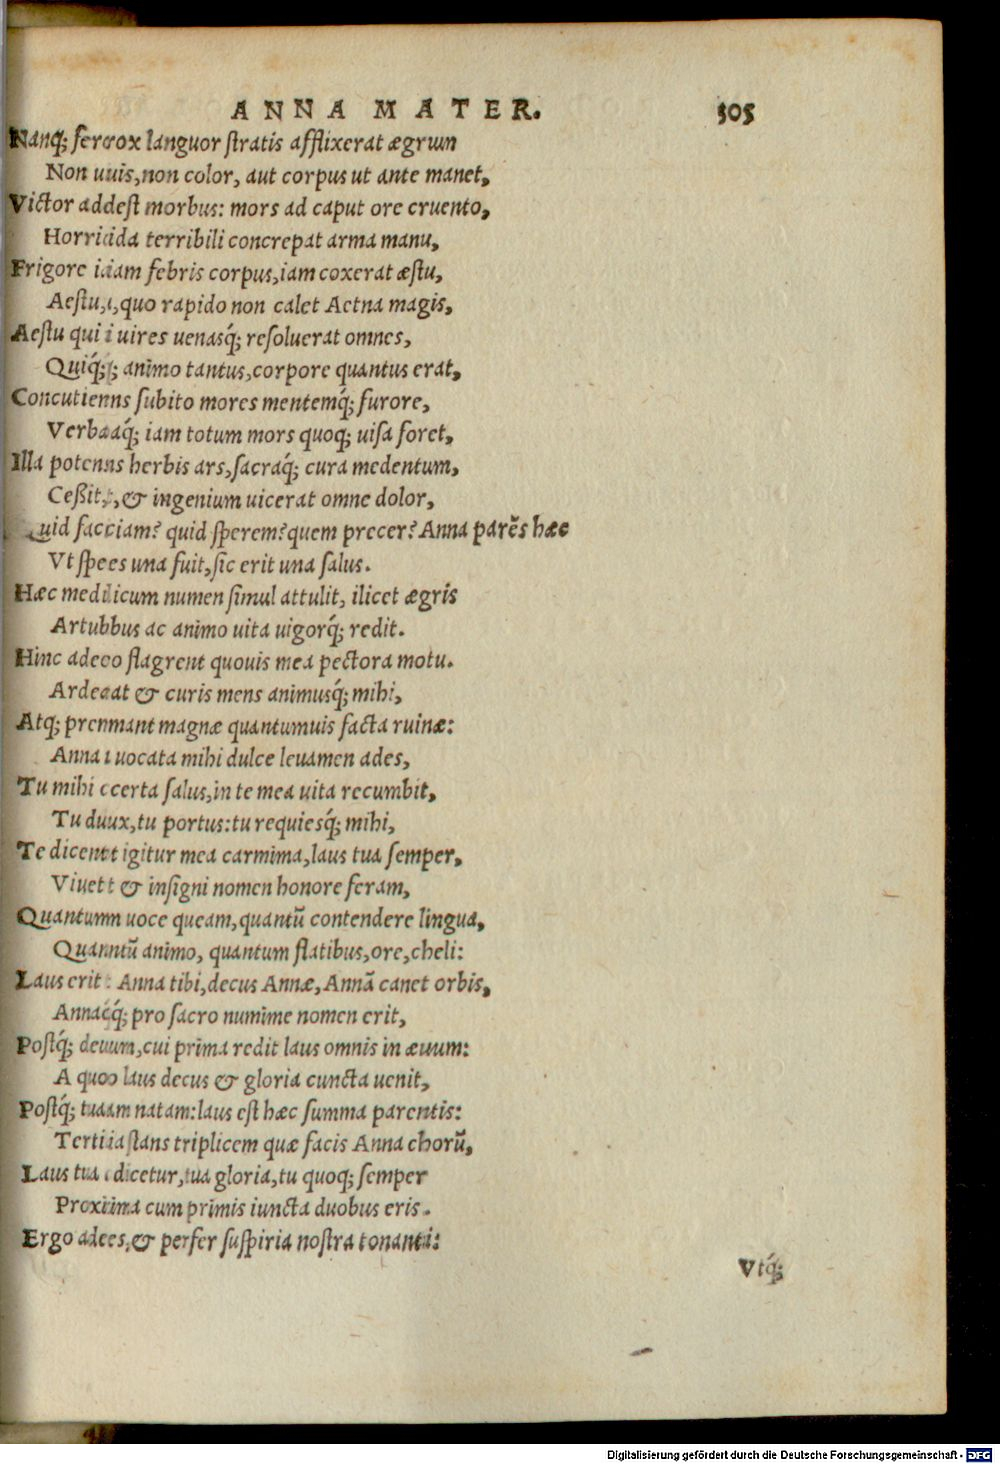 ANNA MATER. 305
Nanq; ferox languor stratis afflixerat ægrum
Non uis, non color, aut corpus ut ante manet,
Victor adest morbus: mors ad caput ore cruento,
Horrida terribili concrepat arma manu,
Frigore iam febris corpus, iam coxerat æstu,
Aestu, quo rapido non calet Aetna magis,
Aestu qui uires uenasq́; resoluerat omnes,
Quiq́; animo tantus, corpore quantus erat,
Concutiens subito mores mentemq́; furore,
Verbaq́; iam totum mors quoq; uisa foret,
Illa potens herbis ars, sacraq́; cura medentum,
Ceßit, & ingenium uicerat omne dolor,
Quid faciam? quid sperem? quem precer? Anna parẽs hæc
Vt spes una fuit, sic erit una salus.
Hæc medicum numen simul attulit, ilicet ægris
Artubus ac animo uita uigorq́; redit.
Hinc adeo flagrent quouis mea pectora motu.
Ardeat & curis mens animusq́; mihi,
Atq; premant magnæ quantumuis facta ruinæ:
Anna uocata mihi dulce leuamen ades,
Tu mihi certa salus, in te mea uita recumbit,
Tu dux, tu portus: tu requiesq́; mihi,
Te dicent igitur mea carmima, laus tua semper,
Viuet & insigni nomen honore feram,
Quantum uoce queam, quantũ contendere lingua,
Quantũ animo, quantum flatibus, ore, cheli:
Laus erit Anna tibi, decus Annæ, Annã canet orbis,
Annaq́; pro sacro numime nomen erit,
Postq́; deum, cui prima redit laus omnis in æuum:
A quo laus decus & gloria cuncta uenit,
Postq́; tuam natam: laus est hæc summa parentis:
Tertia stans triplicem quæ facis Anna chorũ,
Laus tua dicetur, tua gloria, tu quoq; semper
Proxima cum primis iuncta duobus eris.
Ergo ades, & perfer suspiria nostra tonanti:
Vtq́;
Digitalisierung gefördert durch die Deutsche Forschungsgemeinschaft - DFG